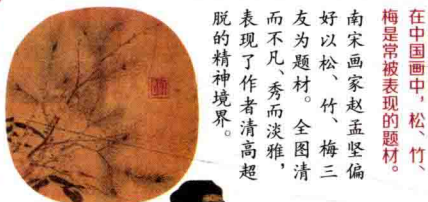 在中国画中，松、竹、
梅是常被表现的题材。
南宋画家赵孟坚偏
好以松、竹、梅三
友为题材。全图清
而不凡、秀而淡雅，
表现了作者清高超
脱的精神境界。